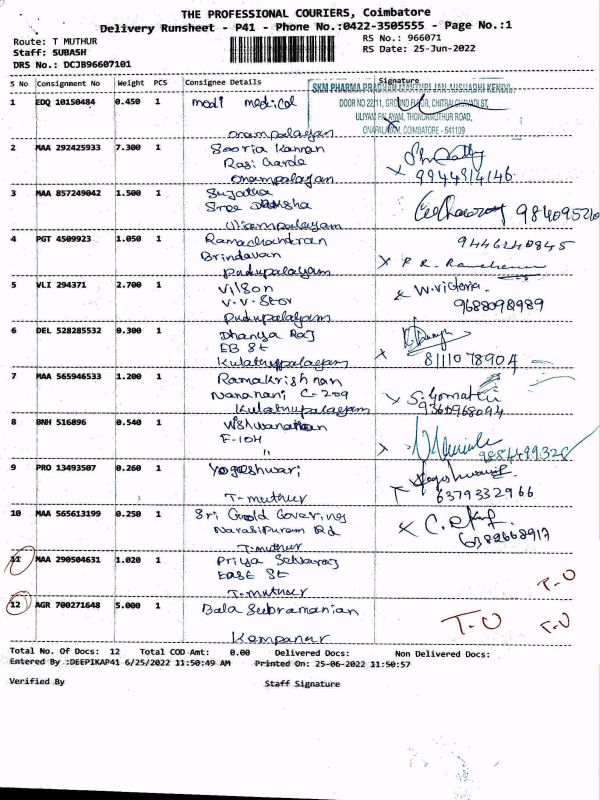 THE PROFESSIONAL COURIERS, Coimbatore
Delivery Runsheet - P41 - Phone No.:0422-3505555 - Page No.:1
Route: T MUTHUR
RS No.: 966071
Staff: SUBASH
RS Date: 25-Jun-2022
DRS No.: DCJB96607101
S No Consignment No Weight PCS Consignee Details Signature
1 EDQ 10150484 0.450 1 modi medical
onampalayam
SKM PHARMA PRADHAN MANTHRI JAN AUSHADHI KENDRA
DOOR NO 22/11, GROUND FLOOR, CHITRALCHAVADI ST,
ULIYAM PALAYAM, THONDAMUTHUR ROAD,
ONAPALAYAM, COIMBATORE - 641109
2 MAA 292425933 7.300 1 Sooria Kannan
Raji Garde
onampalayam
9944314146
3 MAA 857249042 1.500 1 Sujatha
Sree
Uliampalayam
4 PGT 4509923 1.050 1 Ramachandran
Brindavan
pudupalayam
9446240845
5 VLI 294371 2.700 1 Vilson
V.V. Stor
pudupalayam
W. victoria.
9688098989
6 DEL 528285532 0.300 1 Dhanya Raj
EB St
Kulathupalayam
8111078904
7 MAA 565946533 1.200 1 Ramakrishnan
Nananani C-209
Kulathupalayam
S. Gomathi
9360968094
8 BNH 516896 0.540 1 Viswanathan
F-104
"
9884499328
9 PRO 13493507 0.260 1 Yogeshwari
T-muthur
6379332966
10 MAA 565613199 0.250 1 Sri Gold Covering
Narasipuram Rd
T-muthur
6382668917
11 MAA 290504631 1.020 1 Priya Selvaraj
East St
T-muthur
T-O
12 AGR 700271648 5.000 1 Bala Subramanian
Kempanur
T-O
T-O
Total No. Of Docs: 12 Total COD Amt: 0.00 Delivered Docs: Non Delivered Docs:
Entered By :DEEPIKAP41 6/25/2022 11:50:49 AM Printed On: 25-06-2022 11:50:57
Verified By Staff Signature